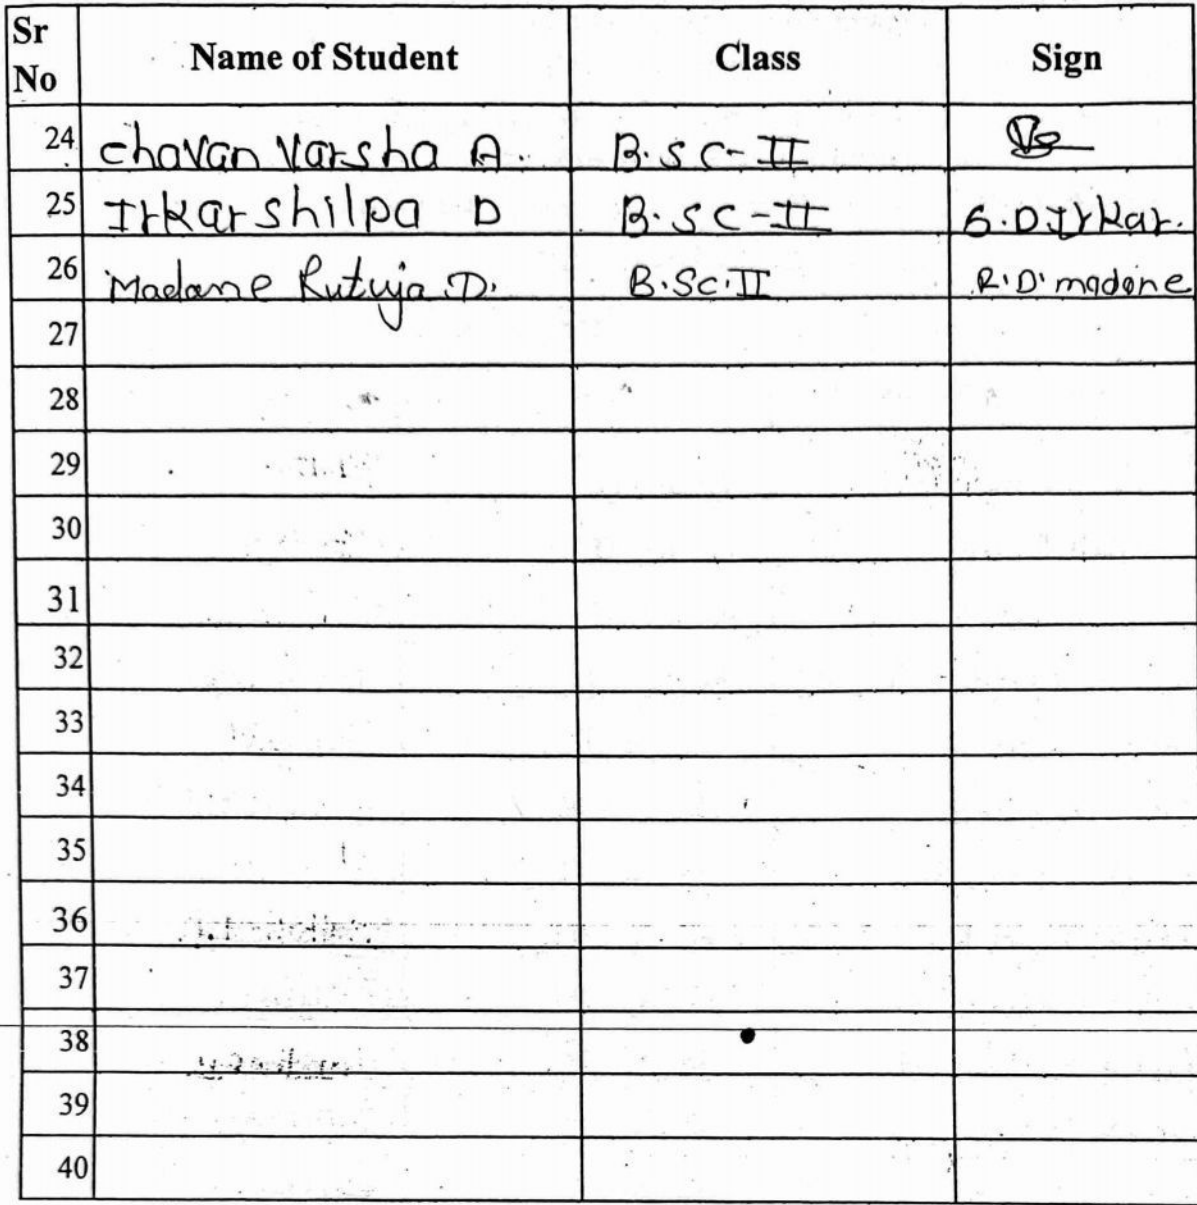 Sr No Name of Student Class Sign
24 Chavan Varsha A. B.SC-II
25 Irkar shilpa D B.SC-II S.D Irkar.
26 Madane Rutuja D. B.Sc.II R.D. madane
27
28
29
30
31
32
33
34
35
36
37
38
39
40